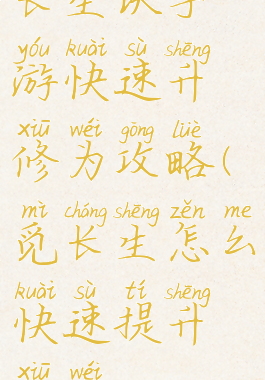 yóu kuài sù shēng
游快速升
xiū wéi gōng lüè
修为攻略(
mì cháng shēng zěn me
觅长生怎么
kuài sù tí shēng
快速提升
xiū wéi